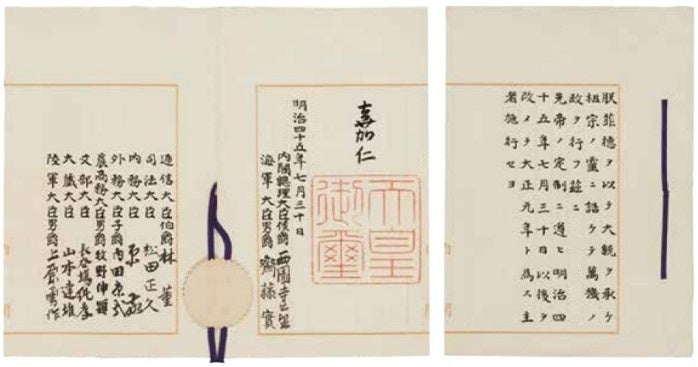 朕菲德ヲ以テ大統ヲ承ケ
祖宗ノ靈ニ誥ケテ萬機ノ
政ヲ行フ茲ニ
先帝ノ定制ニ遵ヒ明治四
十五年七月三十日以後ヲ
改メテ大正元年ト為ス主
者施行セヨ
嘉仁
天皇御璽
明治四十五年七月三十日
內閣總理大臣侯爵 西園寺公望
海軍大臣男爵 齋藤實
遞信大臣伯爵 林董
司法大臣 松田正久
內務大臣 原敬
外務大臣子爵 內田康哉
農商務大臣男爵 牧野伸顯
文部大臣 長谷場純孝
大藏大臣 山本達雄
陸軍大臣男爵 上原勇作